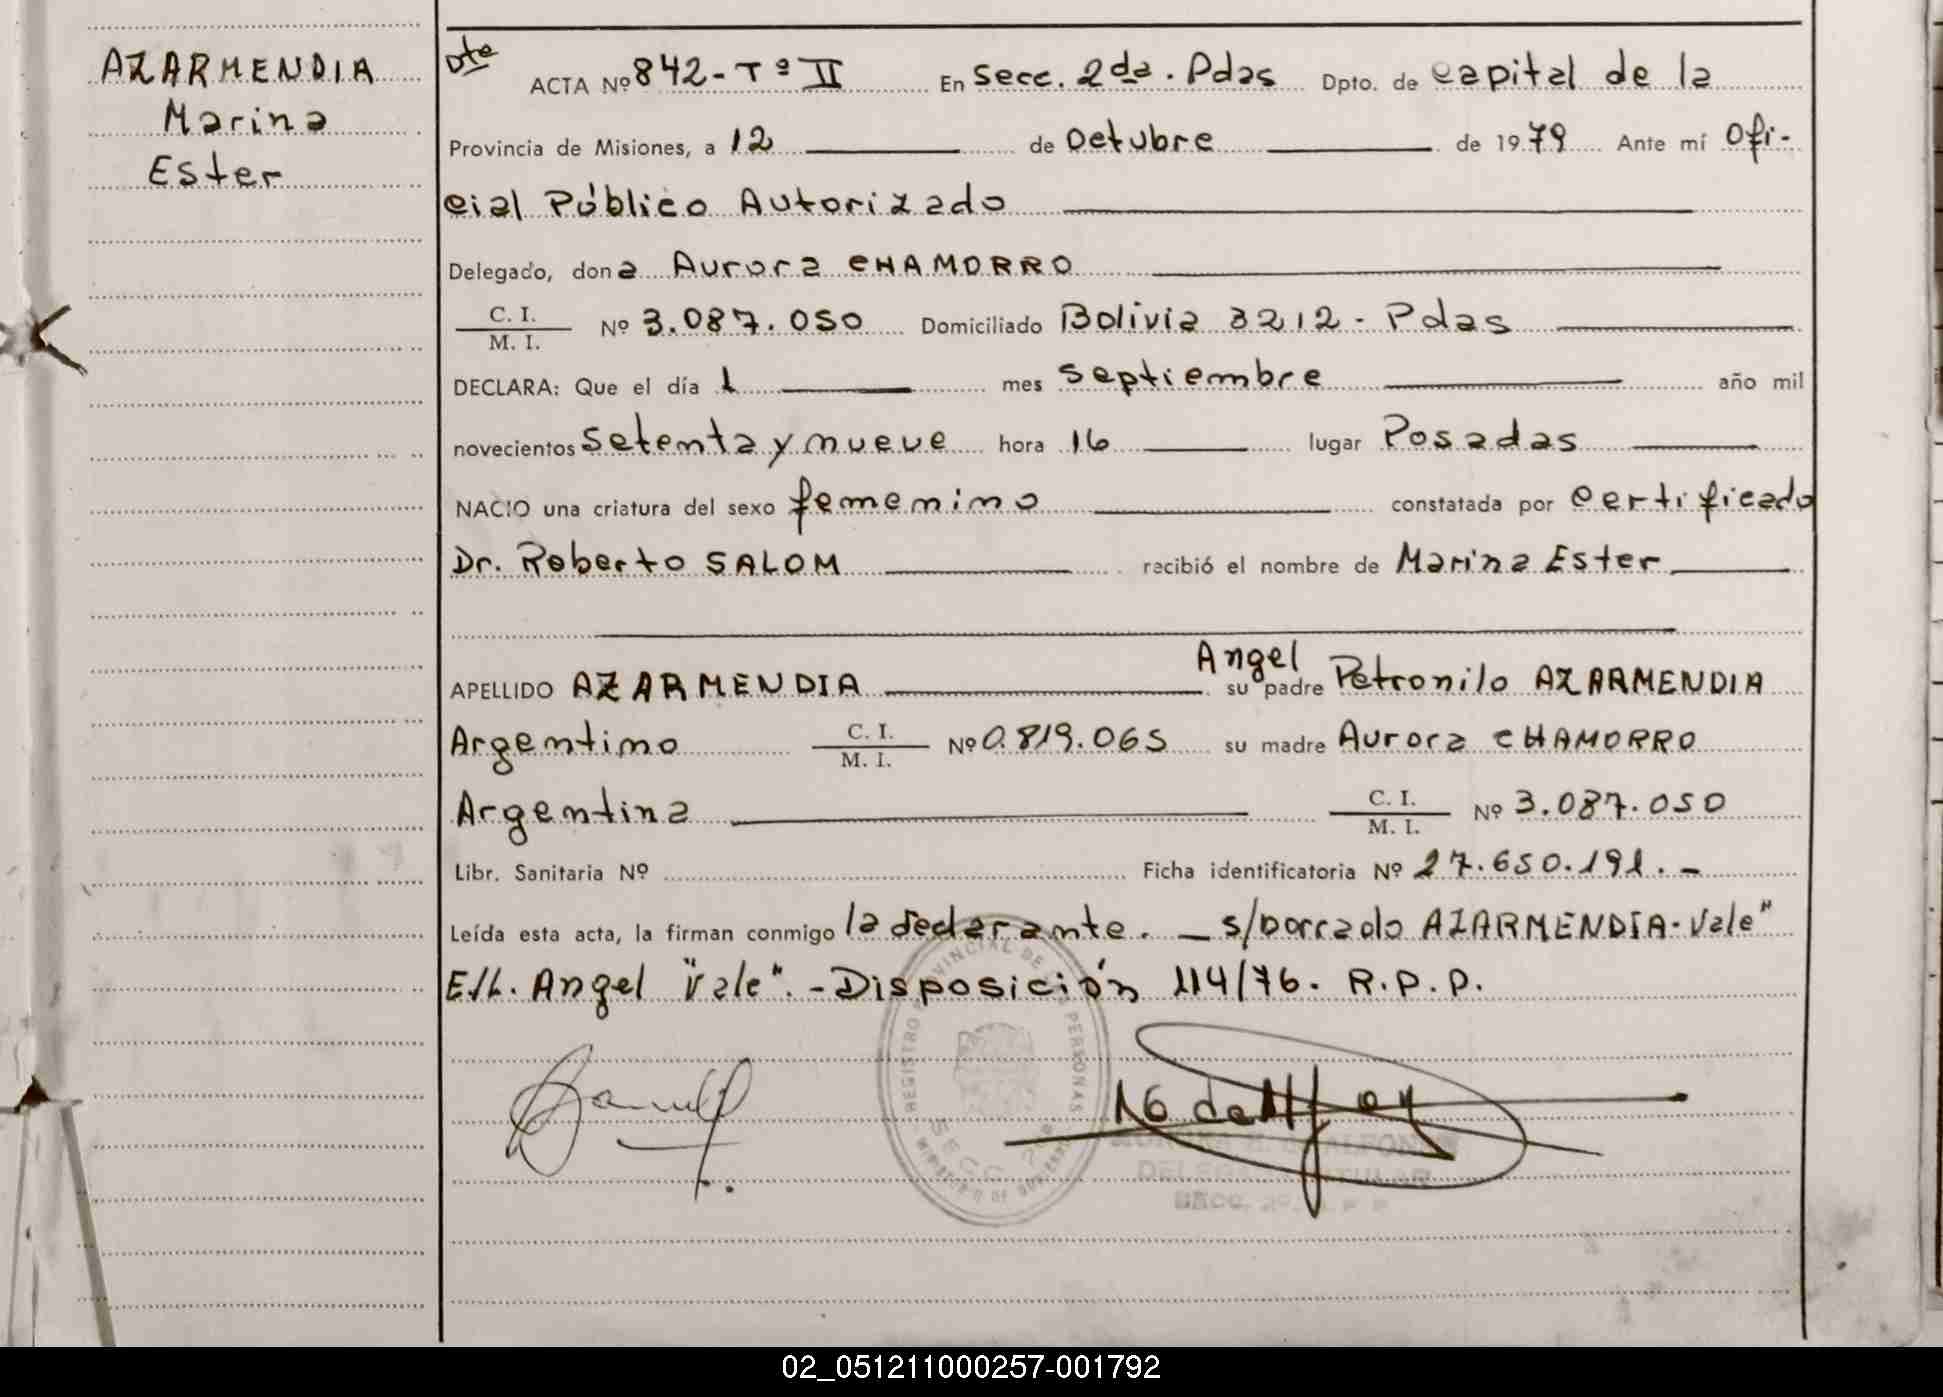 AZARMENDIA
Marina
Ester
Dte
ACTA Nº 842 - Tº II En Secc. 2da. Pdas Dpto. de Capital de la
Provincia de Misiones, a 12 de Octubre de 1979 Ante mí Ofi-
cial Público Autorizado
Delegado, don a Aurora CHAMORRO
C. I.
M. I. Nº 3.087.050 Domiciliado Bolivia 3212 - Pdas
DECLARA: Que el día 1 mes septiembre año mil
novecientos Setenta y nueve hora 16 lugar Posadas
NACIO una criatura del sexo femenino constatada por Certificado
Dr. Roberto SALOM recibió el nombre de Marina Ester
Angel
APELLIDO AZARMENDIA su padre Petronilo AZARMENDIA
Argentino C. I. M. I. Nº 0.819.065 su madre Aurora CHAMORRO
Argentina C. I. M. I. Nº 3.087.050
Libr. Sanitaria Nº Ficha identificatoria Nº 27.650.191.-
Leída esta acta, la firman conmigo la declarante. _ s/borrado AZARMENDIA-Vale"
E/L. Angel "Vale". -Disposición 114/76. R.P.P.
REGISTRO PROVINCIAL DE LAS PERSONAS
SECC. 2ª
MINISTERIO DE GOBIERNO
02_051211000257-001792